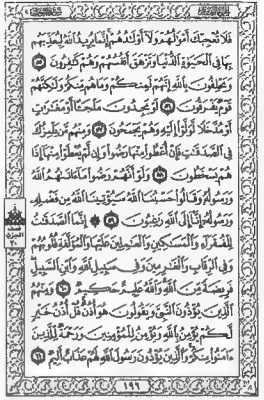 فَلَا تُعْجِبْكَ أَمْوَٰلُهُمْ وَلَآ أَوْلَٰدُهُمْ إِنَّمَا يُرِيدُ ٱللَّهُ لِيُعَذِّبَهُم
بِهَا فِى ٱلْحَيَوٰةِ ٱلدُّنْيَا وَتَزْهَقَ أَنفُسُهُمْ وَهُمْ كَٰفِرُونَ ٥٥
وَيَحْلِفُونَ بِٱللَّهِ إِنَّهُمْ لَمِنكُمْ وَمَا هُم مِّنكُمْ وَلَٰكِنَّهُمْ
قَوْمٌ يَفْرَقُونَ ٥٦ لَوْ يَجِدُونَ مَلْجَـًٔا أَوْ مَغَٰرَٰتٍ
أَوْ مُدَّخَلًا لَّوَلَّوْا۟ إِلَيْهِ وَهُمْ يَجْمَحُونَ ٥٧ وَمِنْهُم مَّن يَلْمِزُكَ
فِى ٱلصَّدَقَٰتِ فَإِنْ أُعْطُوا۟ مِنْهَا رَضُوا۟ وَإِن لَّمْ يُعْطَوْا۟ مِنْهَآ إِذَا
هُمْ يَسْخَطُونَ ٥٨ وَلَوْ أَنَّهُمْ رَضُوا۟ مَآ ءَاتَىٰهُمُ ٱللَّهُ
وَرَسُولُهُۥ وَقَالُوا۟ حَسْبُنَا ٱللَّهُ سَيُؤْتِينَا ٱللَّهُ مِن فَضْلِهِۦ
وَرَسُولُهُۥٓ إِنَّآ إِلَى ٱللَّهِ رَٰغِبُونَ ٥٩ ۞ إِنَّمَا ٱلصَّدَقَٰتُ
لِلْفُقَرَآءِ وَٱلْمَسَٰكِينِ وَٱلْعَٰمِلِينَ عَلَيْهَا وَٱلْمُؤَلَّفَةِ قُلُوبُهُمْ
وَفِى ٱلرِّقَابِ وَٱلْغَٰرِمِينَ وَفِى سَبِيلِ ٱللَّهِ وَٱبْنِ ٱلسَّبِيلِ
فَرِيضَةً مِّنَ ٱللَّهِ وَٱللَّهُ عَلِيمٌ حَكِيمٌ ٦٠ وَمِنْهُمُ
ٱلَّذِينَ يُؤْذُونَ ٱلنَّبِىَّ وَيَقُولُونَ هُوَ أُذُنٌ قُلْ أُذُنُ خَيْرٍ
لَّكُمْ يُؤْمِنُ بِٱللَّهِ وَيُؤْمِنُ لِلْمُؤْمِنِينَ وَرَحْمَةٌ لِّلَّذِينَ
ءَامَنُوا۟ مِنكُمْ وَٱلَّذِينَ يُؤْذُونَ رَسُولَ ٱللَّهِ لَهُمْ عَذَابٌ أَلِيمٌ ٦١
نصف
الحزب
٢٠
١٩٦